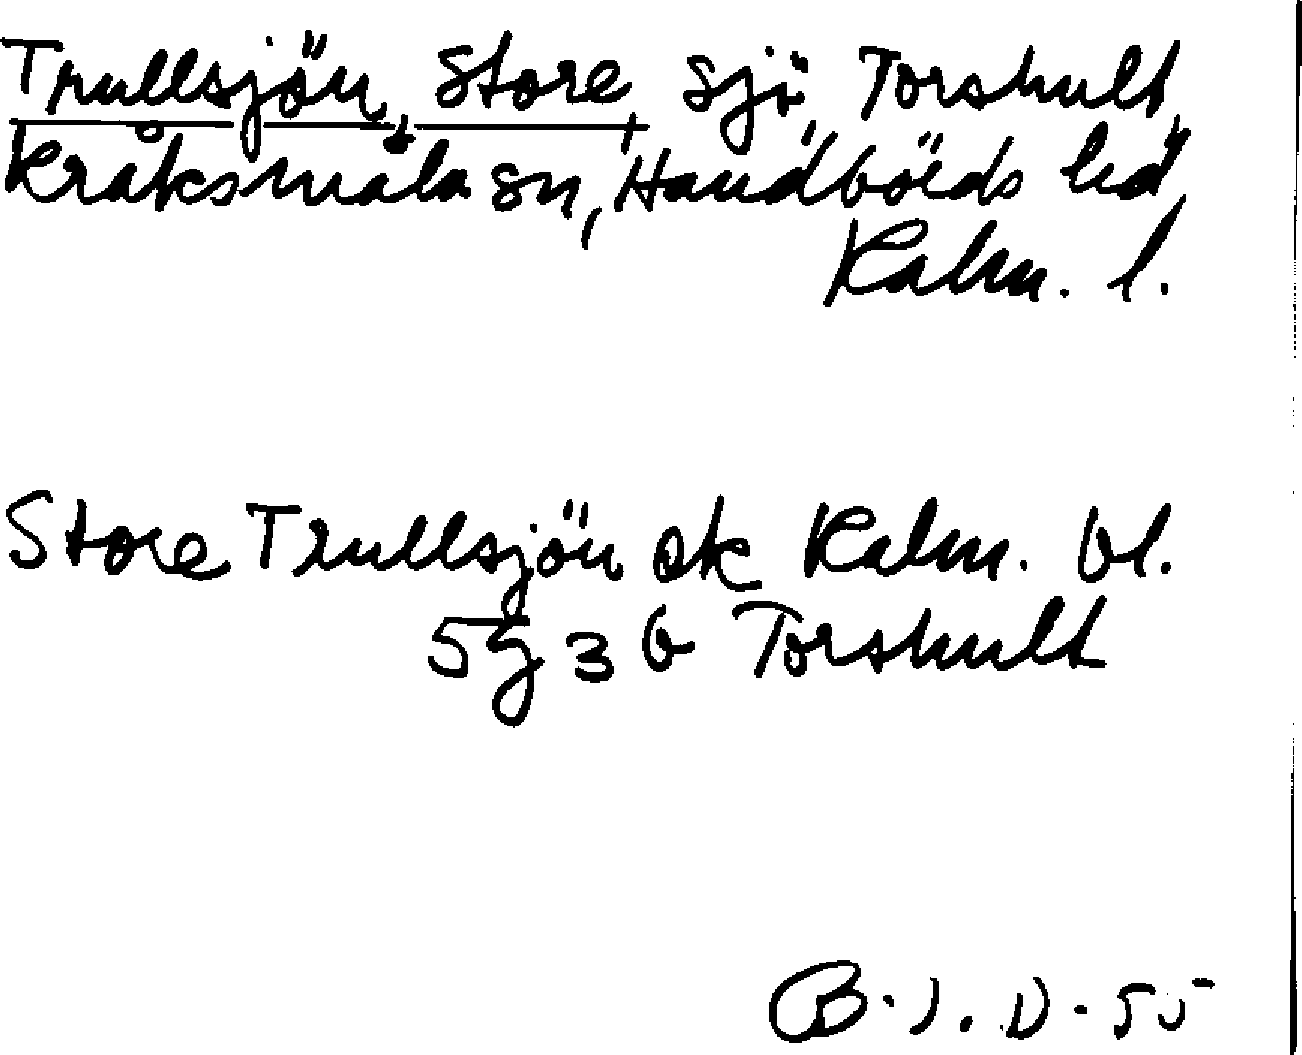 Trullsjön, Store, sjö, Torshult,
Kråksmåla sn, Handbörds hd,
Kalm. l.
Store Trullsjön ek Kalm. bl.
5g 3 b Torshult
B.J.D. 55